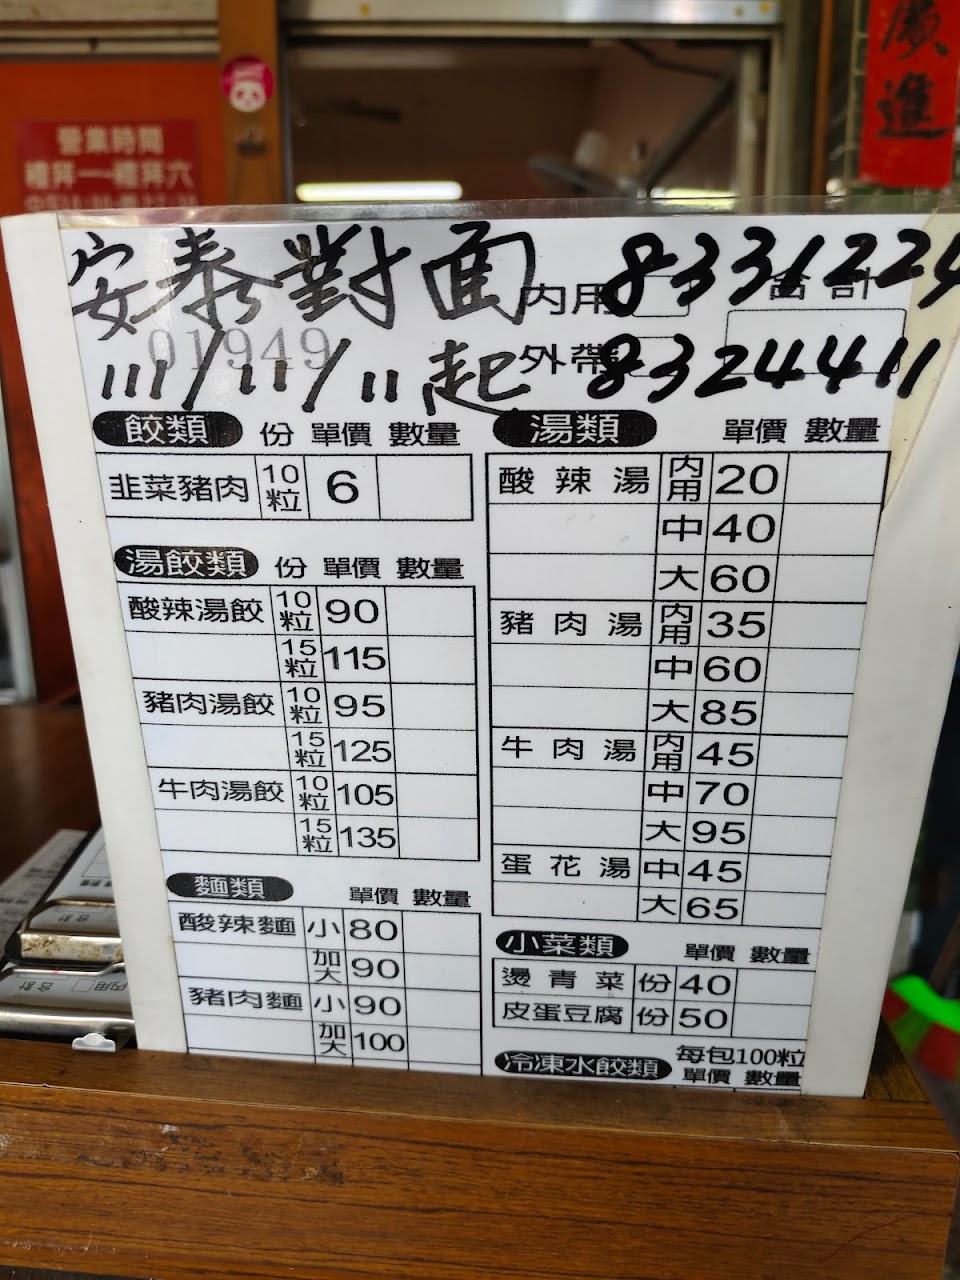 廣
進
營業時間
禮拜一—禮拜六
安泰對面
內用 合計 8331224
01949
111/11/11起
外帶 8324411
餃類 份 單價 數量
韭菜豬肉 10粒 6
湯餃類 份 單價 數量
酸辣湯餃 10粒 90
15粒 115
豬肉湯餃 10粒 95
15粒 125
牛肉湯餃 10粒 105
15粒 135
麵類 單價 數量
酸辣麵 小 80
加大 90
豬肉麵 小 90
加大 100
湯類 單價 數量
酸辣湯 內用 20
中 40
大 60
豬肉湯 內用 35
中 60
大 85
牛肉湯 內用 45
中 70
大 95
蛋花湯 中 45
大 65
小菜類 單價 數量
燙青菜 份 40
皮蛋豆腐 份 50
冷凍水餃類 每包100粒
單價 數量
合計
內用
合計